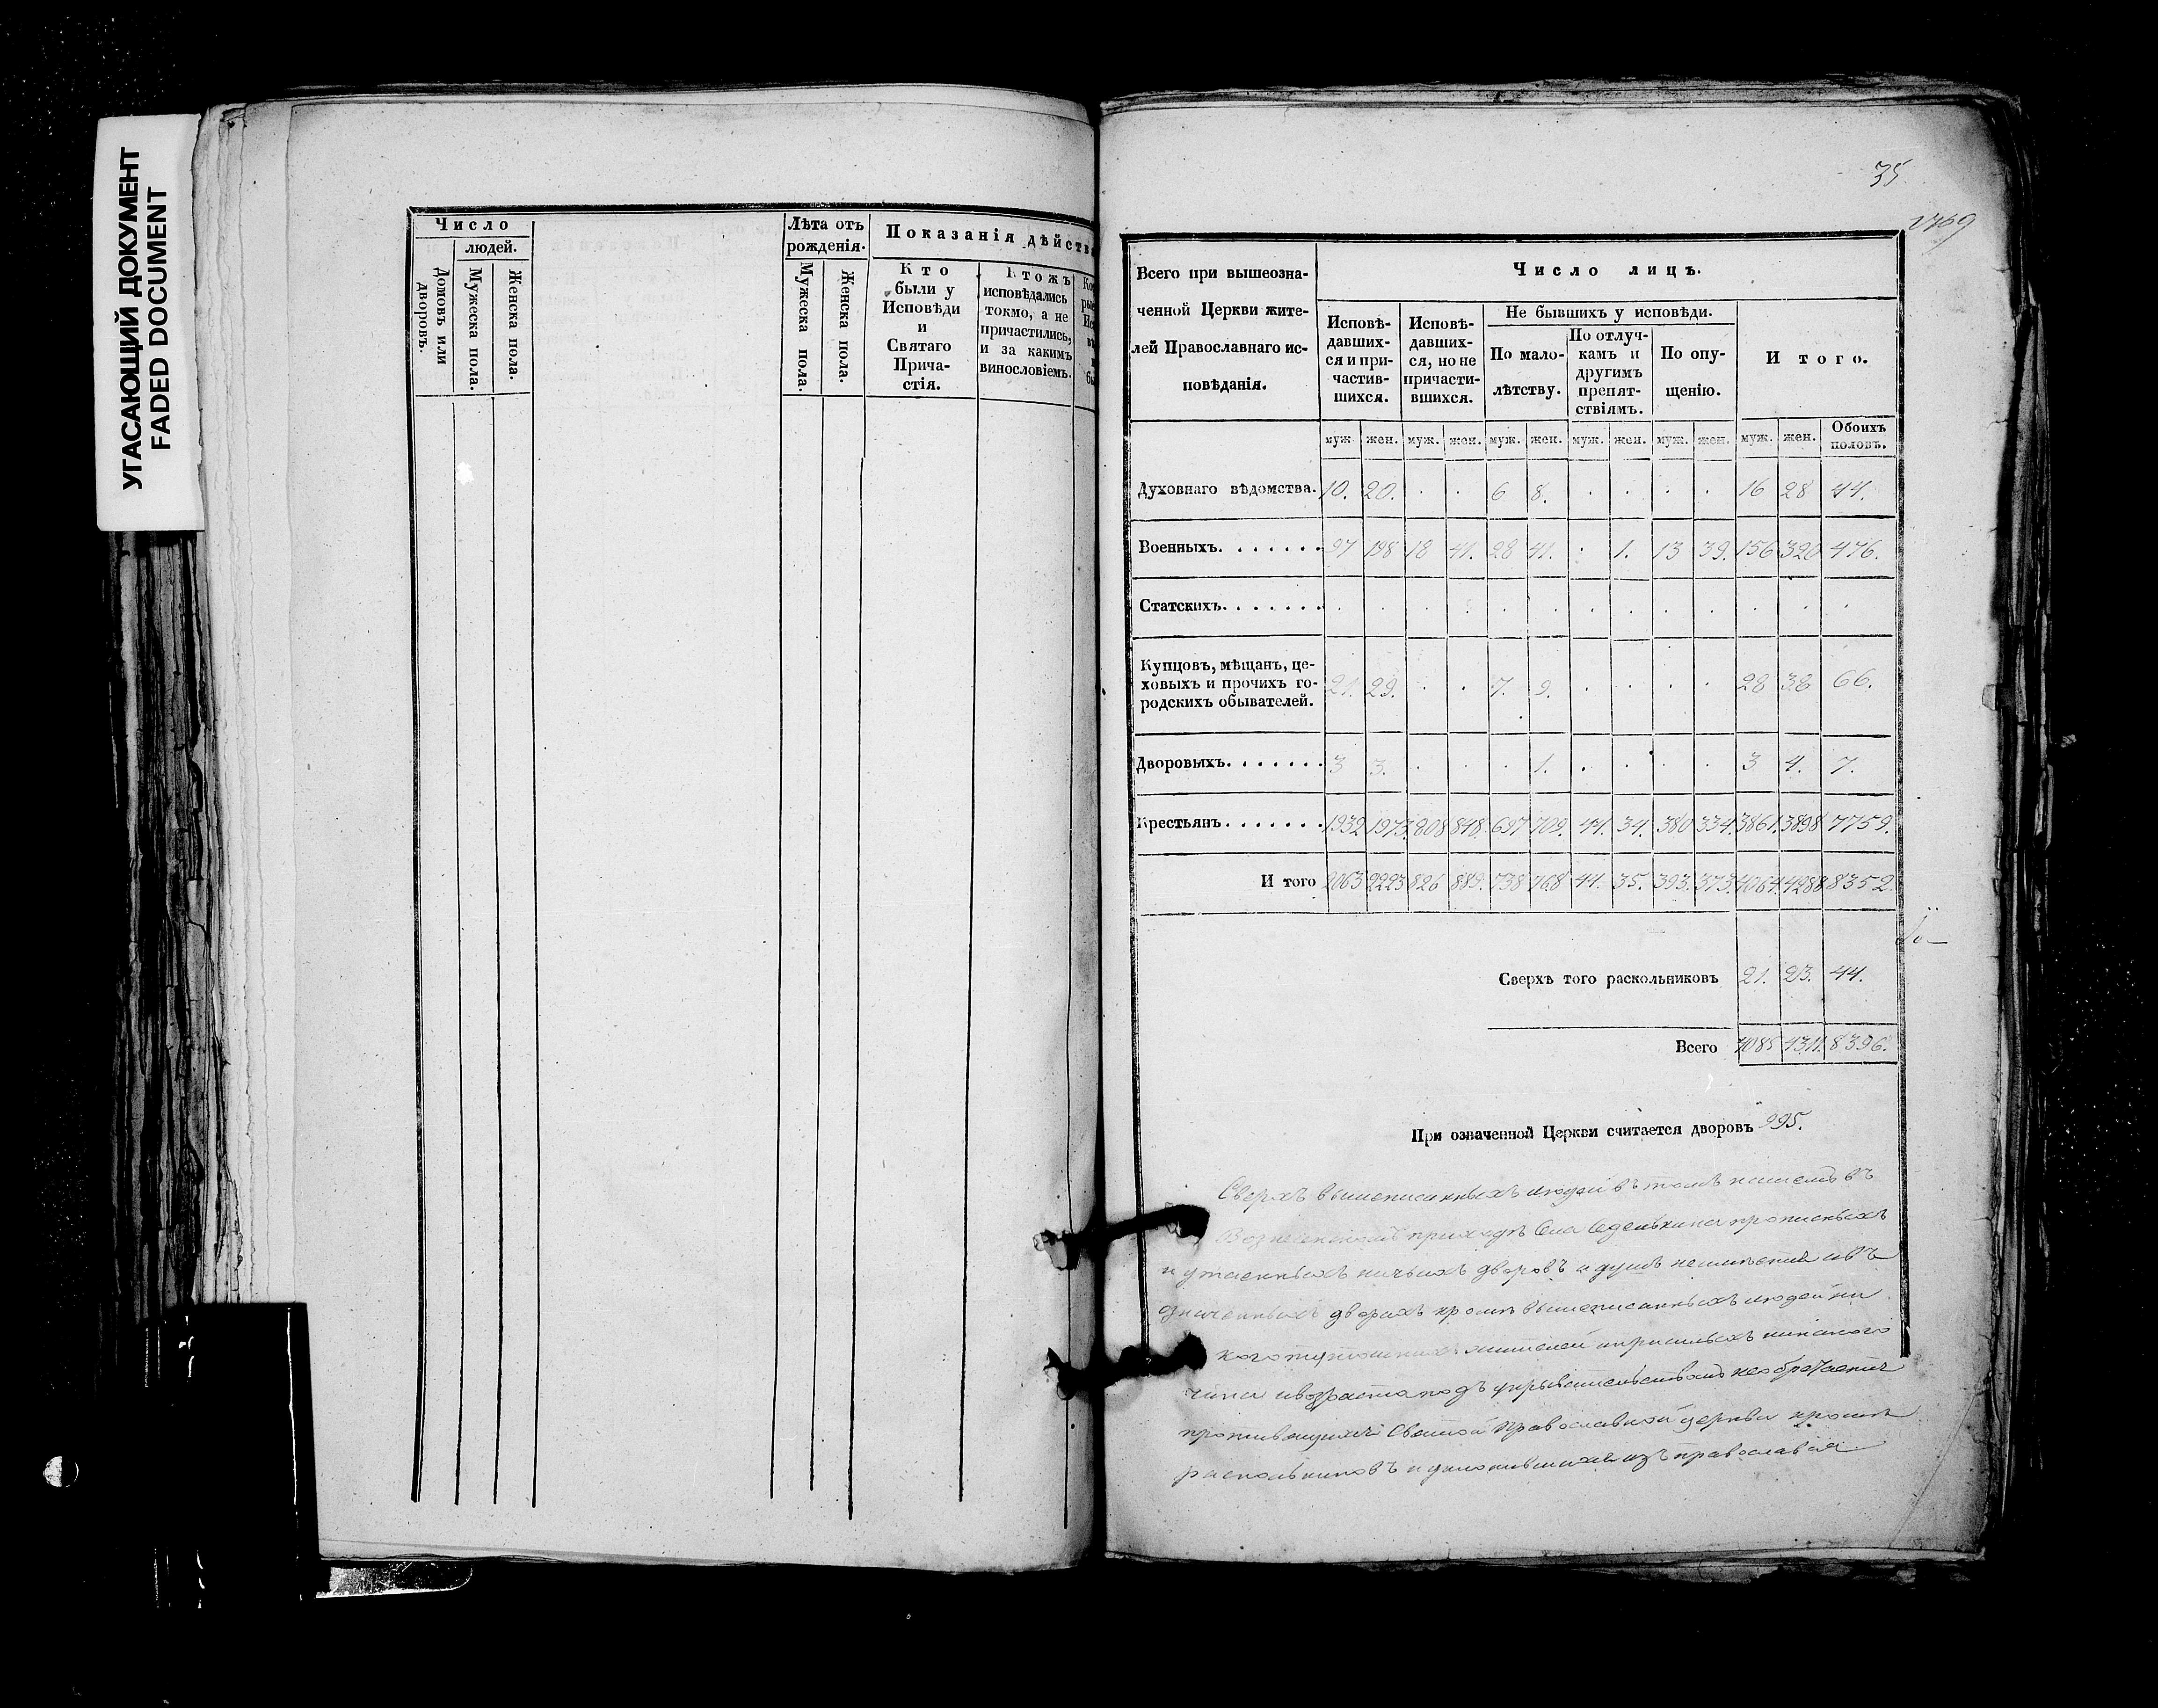 УГАСАЮЩИЙ ДОКУМЕНТ
FADED DOCUMENT
Число
людей.
Домовъ или дворовъ.
Мужеска пола.
Женска пола.
Лѣта отъ
рожденія.
Мужеска пола.
Женска пола.
Показанія дѣйств
Кто
были у
Исповѣди
и
Святаго
Прича-
стія.
Ктожъ
исповѣдались
токмо, а не
причастились,
и за какимъ
винословіемъ.
35
Всего при вышеозна-
ченной Церкви жите-
лей Православнаго ис-
повѣданія.
Число лицъ.
Исповѣ-
давших-
ся и при-
частив-
шихся.
Исповѣ-
давших-
ся, но не
причасти-
вшихся.
Не бывшихъ у исповѣди.
По мало-
лѣтству.
По отлуч-
камъ и
другимъ
препят-
ствіямъ.
По опу-
щенію.
И того.
муж. жен. муж. жен. муж. жен. муж. жен. муж. жен. муж. жен. Обоихъ половъ.
Духовнаго вѣдомства. 10. 20. . . 6 8. . . . . 16 28 44.
Военныхъ. . . . . . . 97 198 18 41. 28 41. . 1. 13 39. 156 320 476.
Статскихъ. . . . . . . . . . . . . . . . . . . .
Купцовъ, мѣщанъ, це-
ховыхъ и прочихъ го-
родскихъ обывателей. 21. 29. . . 7. 9. . . . . 28 38 66.
Дворовыхъ. . . . . . . 3 3. . . . 1. . . . . 3 4. 7.
Крестьянъ. . . . . . . 1932 1973. 808 848. 697 709. 44. 34. 380 334. 3861. 3898 7759.
И того 2063 2223 826 889. 738 768 44. 35. 393. 373. 4064. 4288 8352.
Сверхъ того раскольниковъ 21. 23. 44.
Всего 4085 4311. 8396.
При означенной Церкви считается дворовъ 995.
Сверхъ вышеписанныхъ людей въ томъ
приходѣ Села прописныхъ
и утаенныхъ дворовъ и душъ неимѣется и въ
означенныхъ дворахъ кромѣ вышеписанныхъ людей ни
кого жителей никакого
чина и возраста подъ укрывательствомъ
Святой Православной церкви кромѣ
раскольниковъ и уклонившихся изъ православія